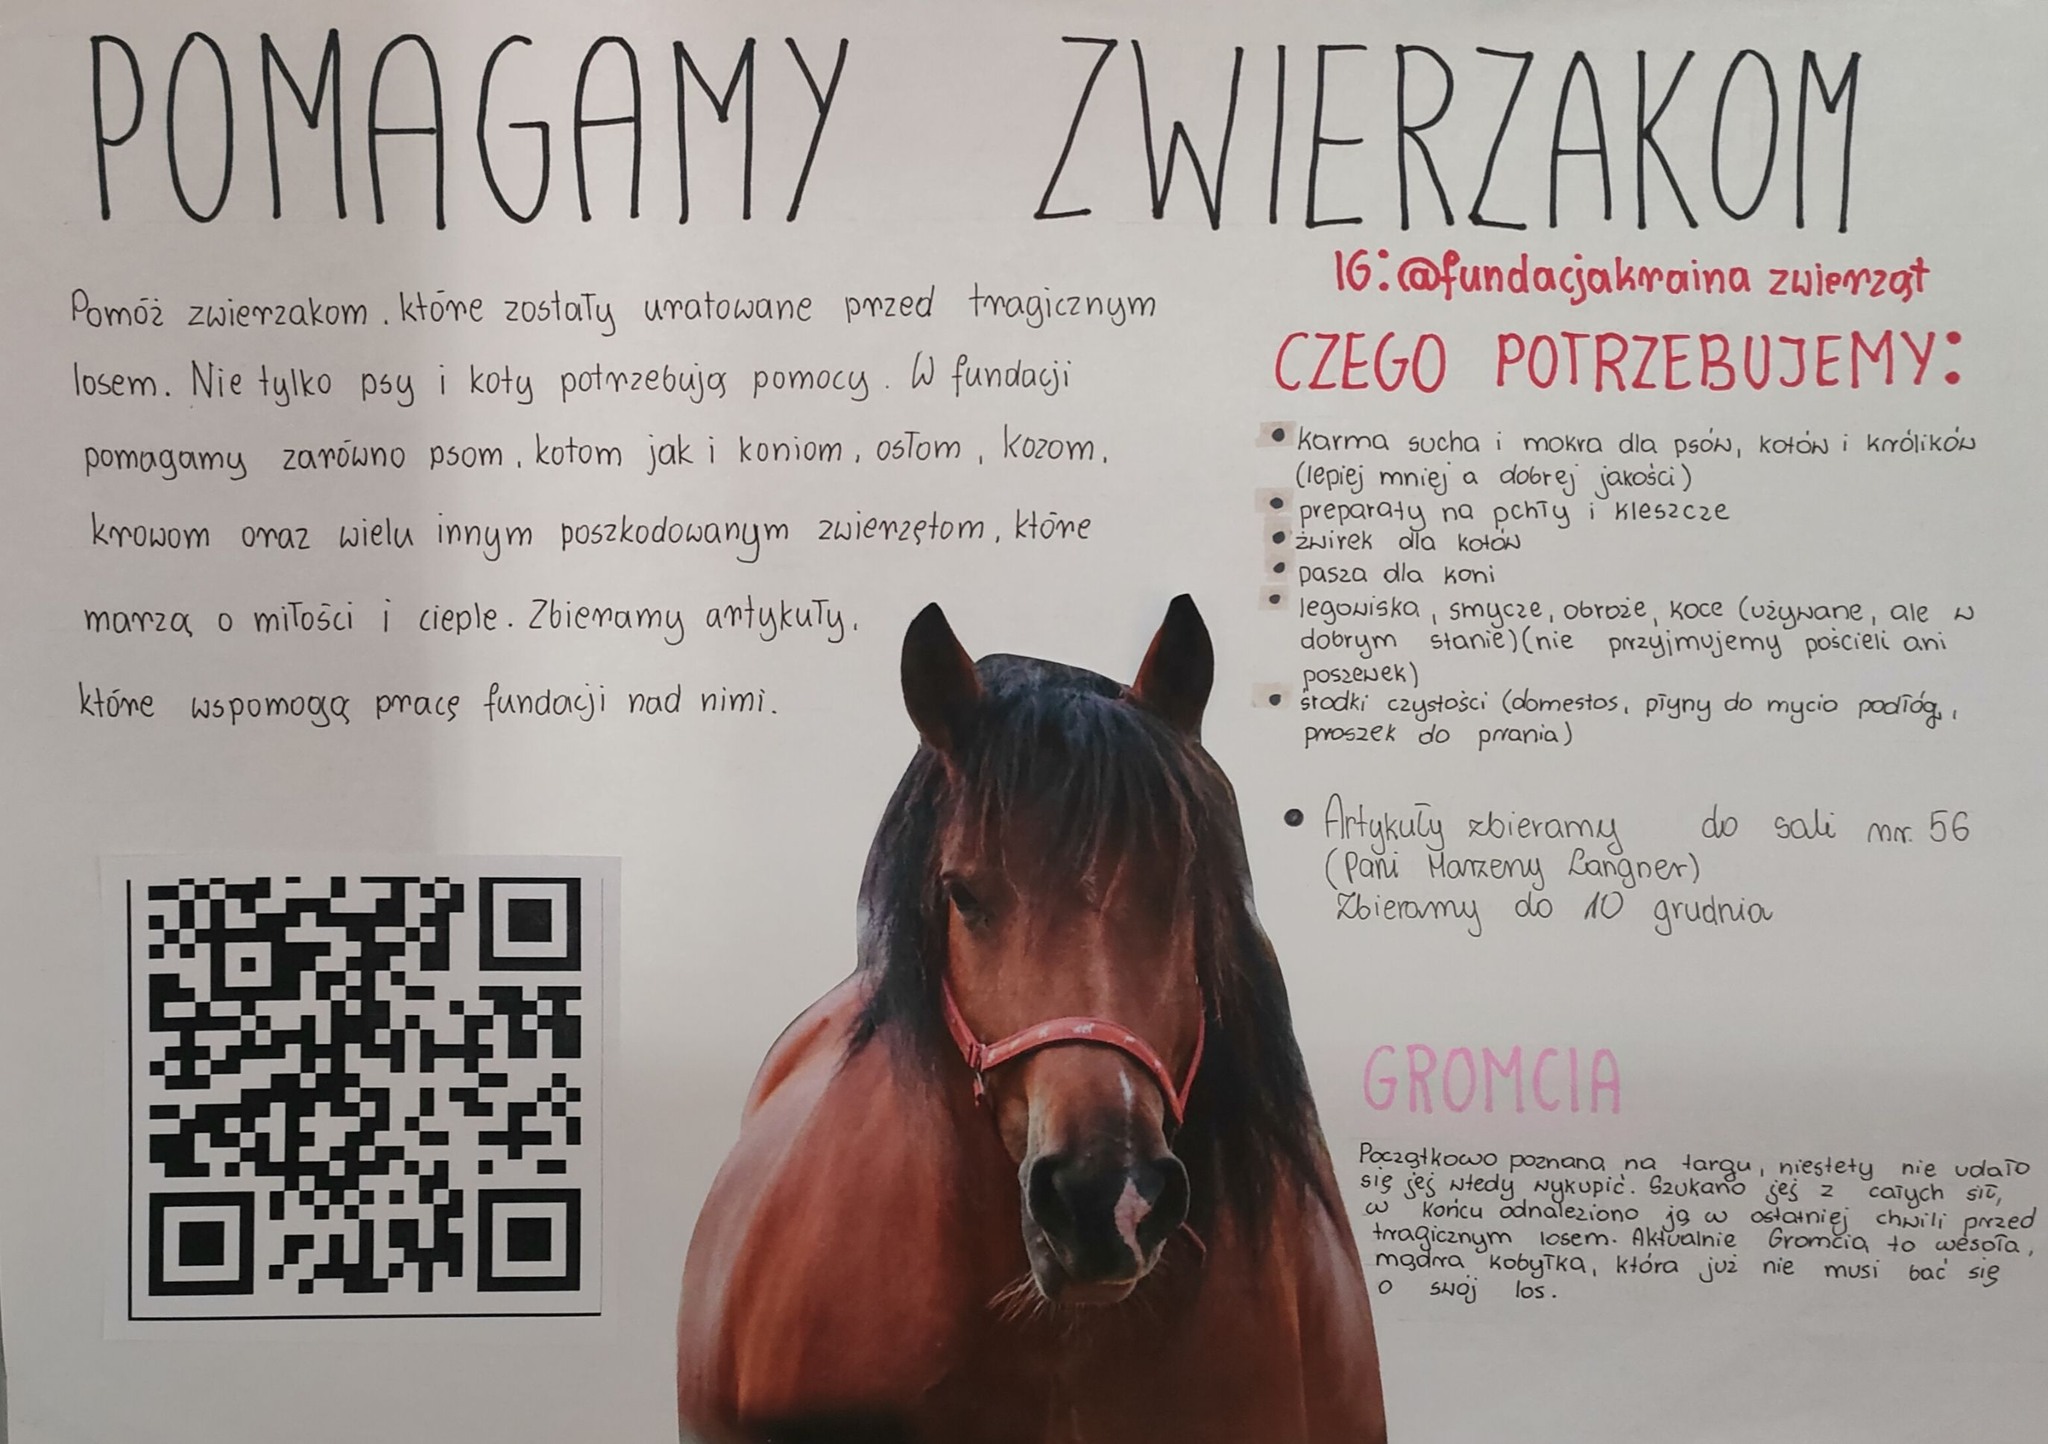 POMAGAMY ZWIERZAKOM
Pomóż zwierzakom, które zostały uratowane przed tragicznym
losem. Nie tylko psy i koty potrzebują pomocy. W fundacji
pomagamy zarówno psom, kotom jak i koniom, osłom, kozom,
krowom oraz wielu innym poszkodowanym zwierzętom, które
marzą o miłości i cieple. Zbieramy artykuły,
które wspomogą pracę fundacji nad nimi.
IG: @fundacjakraina zwierząt
CZEGO POTRZEBUJEMY:
• karma sucha i mokra dla psów, kotów i królików
(lepiej mniej a dobrej jakości)
• preparaty na pchły i kleszcze
• żwirek dla kotów
• pasza dla koni
• legowiska, smycze, obroże, koce (używane, ale w
dobrym stanie)(nie przyjmujemy pościeli ani
poszewek)
• środki czystości (domestos, płyny do mycia podłóg,
proszek do prania)
• Artykuły zbieramy do sali nr. 56
(Pani Marzeny Langner)
Zbieramy do 10 grudnia
GROMCIA
Początkowo poznana na targu, niestety nie udało
się jej wtedy wykupić. Szukano jej z całych sił,
w końcu odnaleziono ją w ostatniej chwili przed
tragicznym losem. Aktualnie Gromcia to wesoła,
mądra kobyłka, która już nie musi bać się
o swój los.